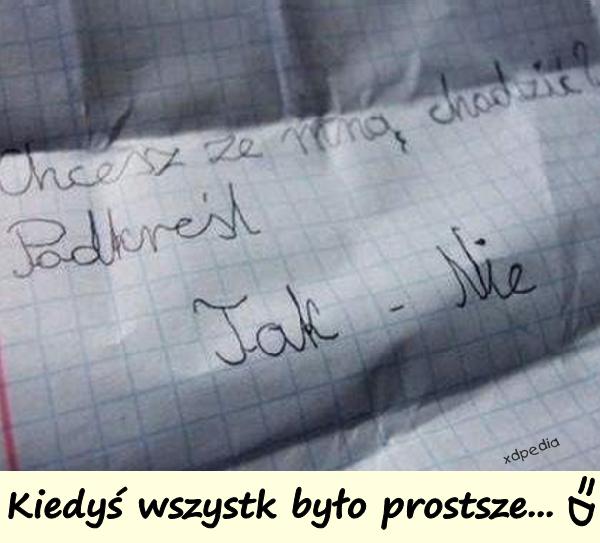 Chcesz ze mną chodzić?
Podkreśl
Tak - Nie
xdpedia
Kiedyś wszystk było prostsze... =D